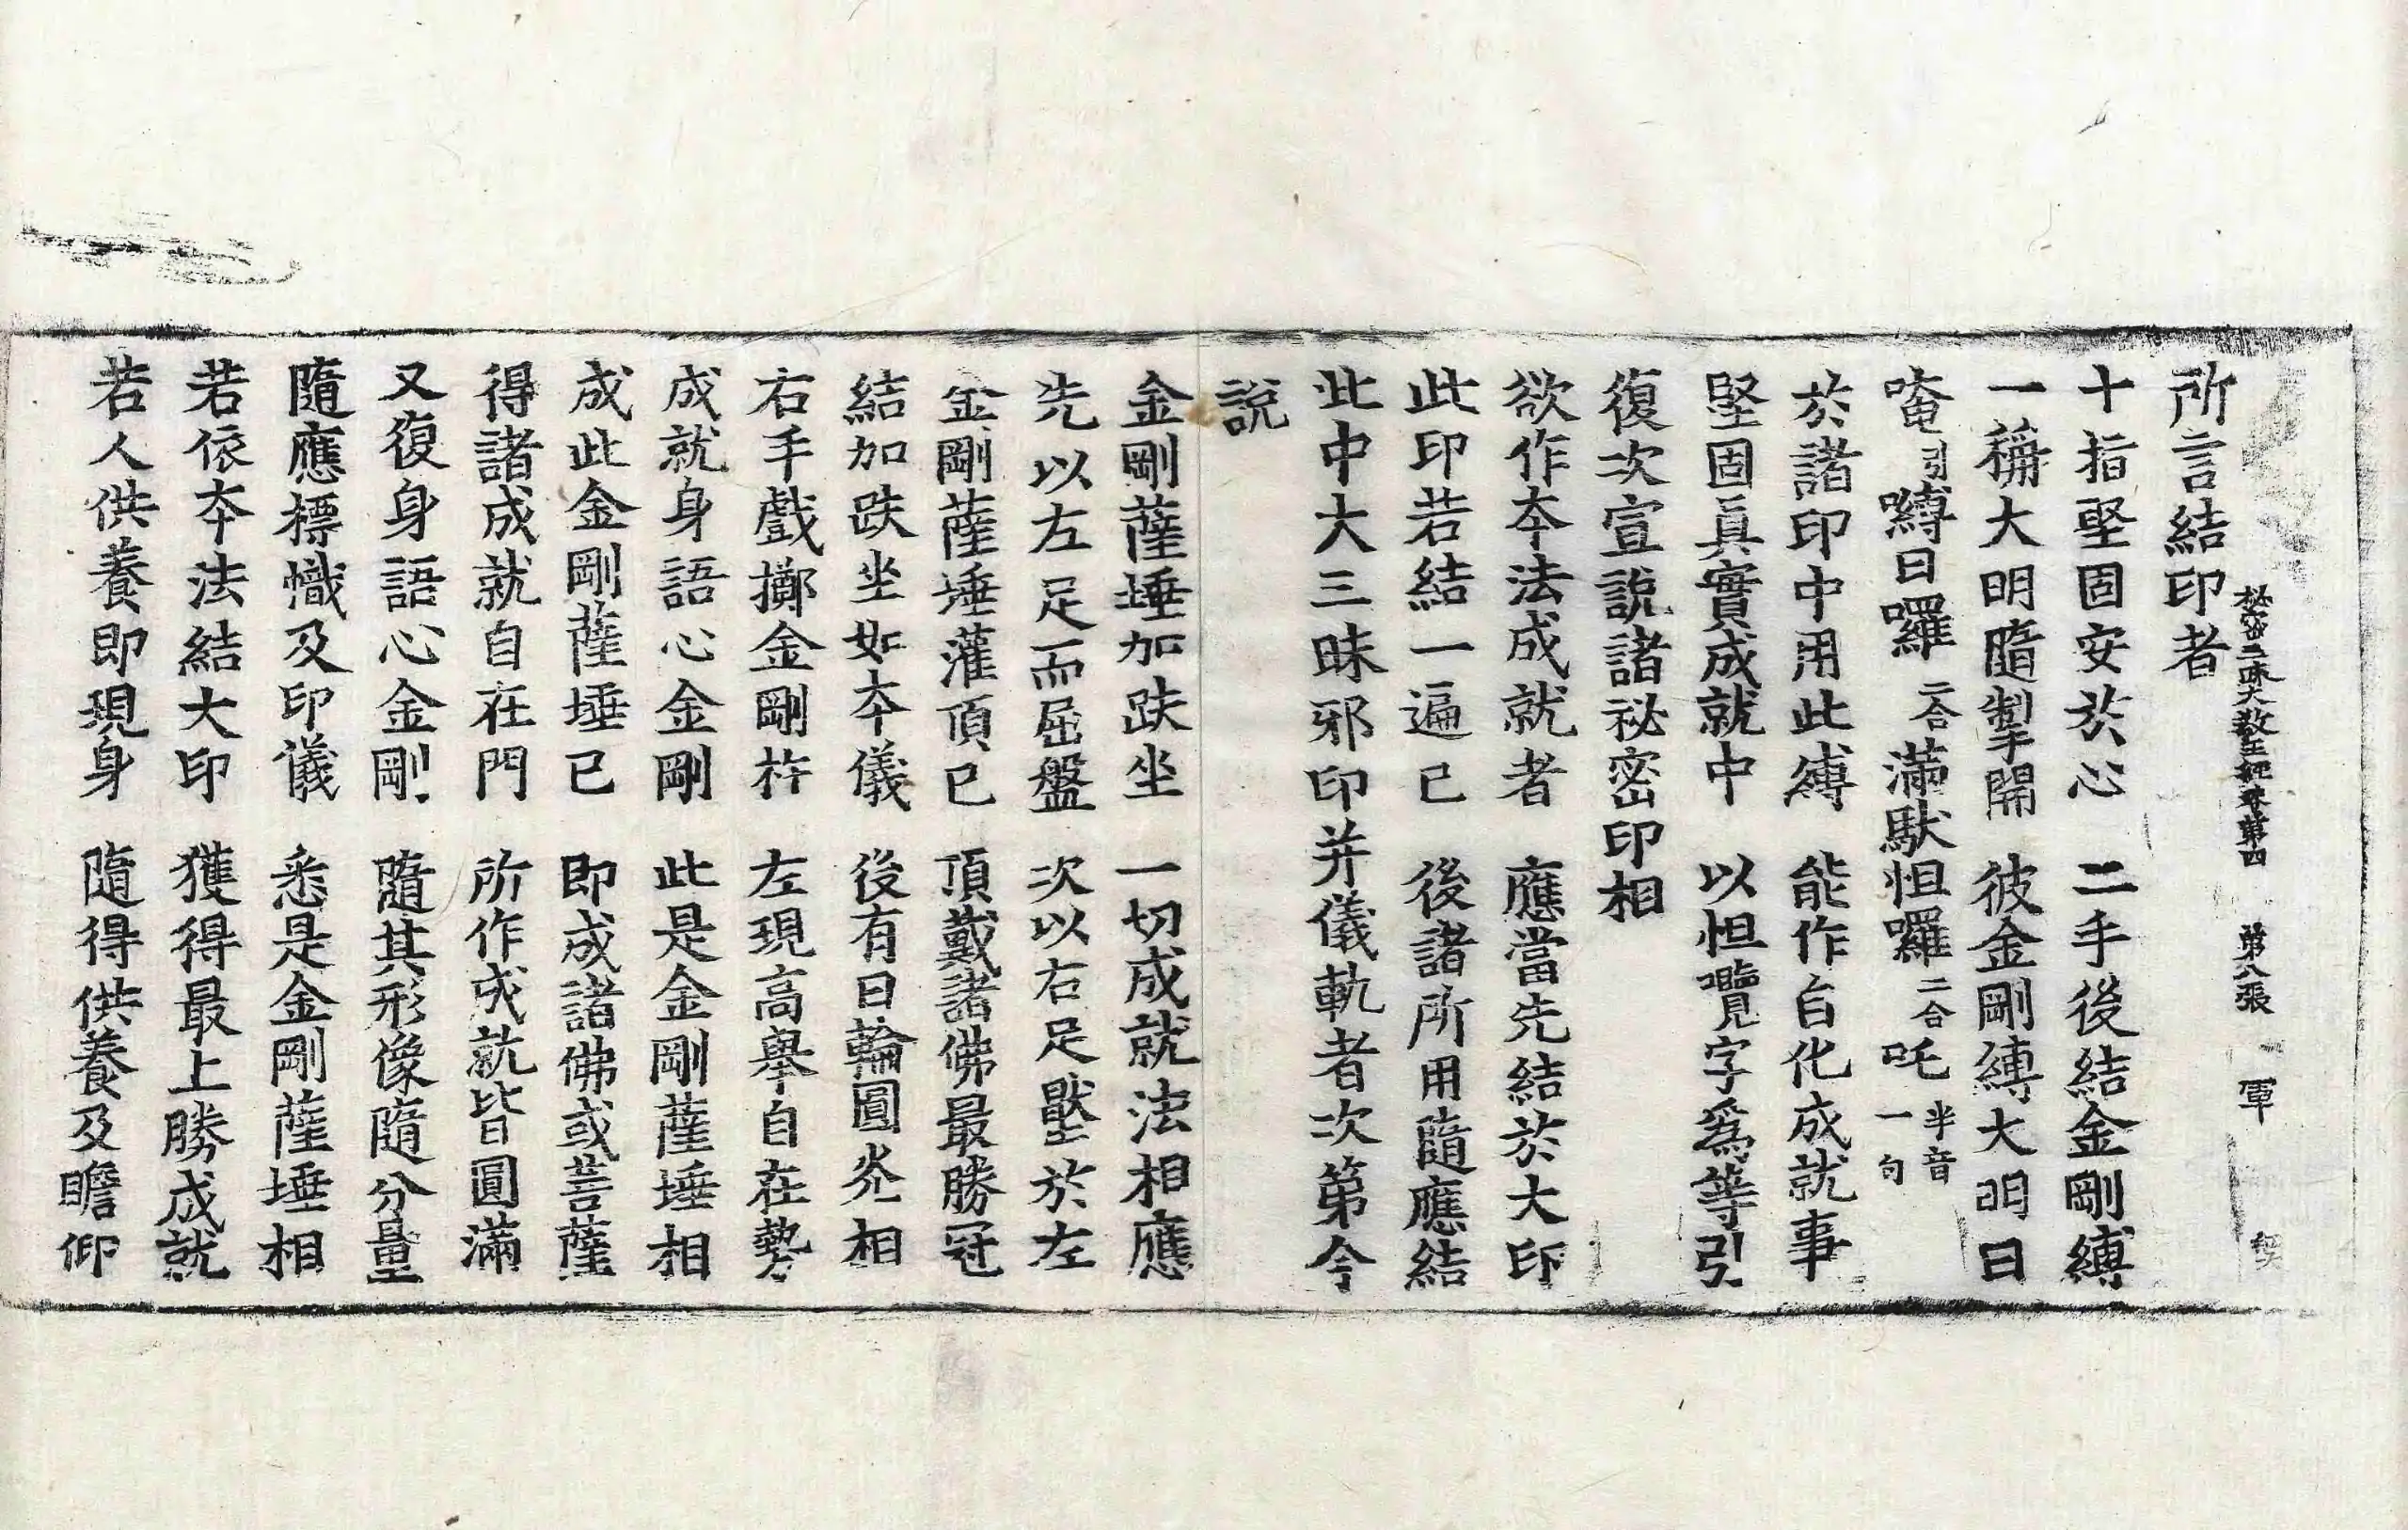 秘密三昧大教王經卷第四 第八張 軍
所言結印者
十指堅固安於心 二手後結金剛縛
一稱大明隨掣開 彼金剛縛大明曰
唵引嚩日囉二合滿馱怛囉二合吒半音一句
於諸印中用此縛 能作自化成就事
堅固真實成就中 以怛囕字為等引
復次宣說諸祕密印相
欲作本法成就者 應當先結於大印
此印若結一遍已 後諸所用隨應結
此中大三昧邪印并儀軌者次第今
說
金剛薩埵加趺坐 一切成就法相應
先以左足而屈盤 次以右足壓於左
金剛薩埵灌頂已 頂戴諸佛最勝冠
結加趺坐如本儀 後有日輪圓光相
右手戲擲金剛杵 左現高舉自在勢
成就身語心金剛 此是金剛薩埵相
成此金剛薩埵已 即成諸佛或菩薩
得諸成就自在門 所作成就皆圓滿
又復身語心金剛 隨其形像隨分量
隨應標幟及印儀 悉是金剛薩埵相
若依本法結大印 獲得最上勝成就
若人供養即現身 隨得供養及瞻仰